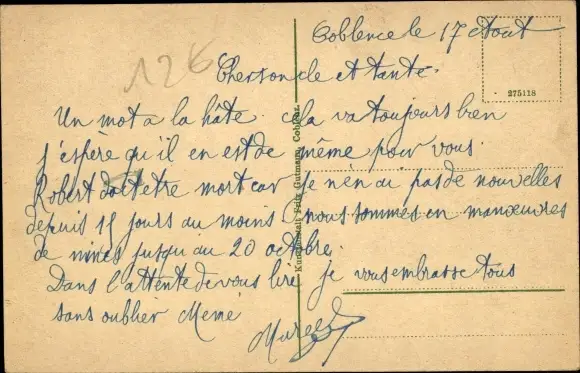 Coblence le 17 Aout
126
Cher oncle et tante.
275118
Un mot a la hâte. cela va toujours bien
j'espère qu'il en est de même pour vous.
Robert doit etre mort car je n'en ai pas de nouvelles
depuis 15 jours au moins nous sommes en manœuvres
de mines jusqu'au 20 octobre.
Dans l'attente de vous lire je vous embrasse tous
sans oublier Mémé
Marcel
Kunstanstalt Fritz Gutmann, Coblenz.